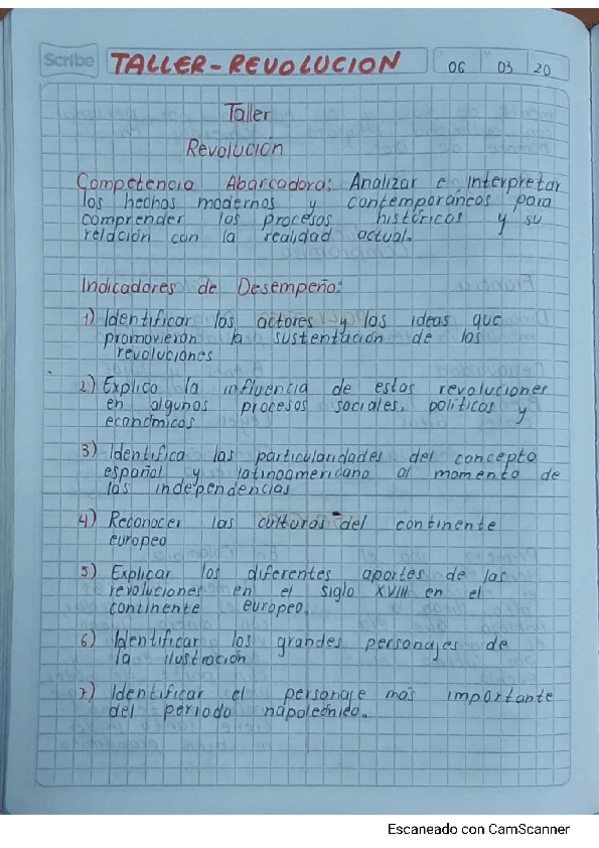 Scribe
TALLER-REVOLUCION
06 03 20
Taller
Revolución
Competencia Abarcadora: Analizar e interpretar
los hechos modernos y contemporáneos para
comprender los procesos históricos y su
relación con la realidad actual.
Indicadores de Desempeño:
1) Identificar los actores y las ideas que
promovieron la sustentación de las
revoluciones
2) Explico la influencia de estas revoluciones
en algunos procesos sociales, políticos y
económicos
3) Identifica las particularidades del concepto
español y latinoamericano al momento de
las independencias
4) Reconocer las culturas del continente
europeo
5) Explicar los diferentes aportes de las
revoluciones en el siglo XVIII en el
continente europeo.
6) Identificar los grandes personajes de
la ilustración
7) Identificar el personaje más importante
del periodo napoleónico.
Escaneado con CamScanner